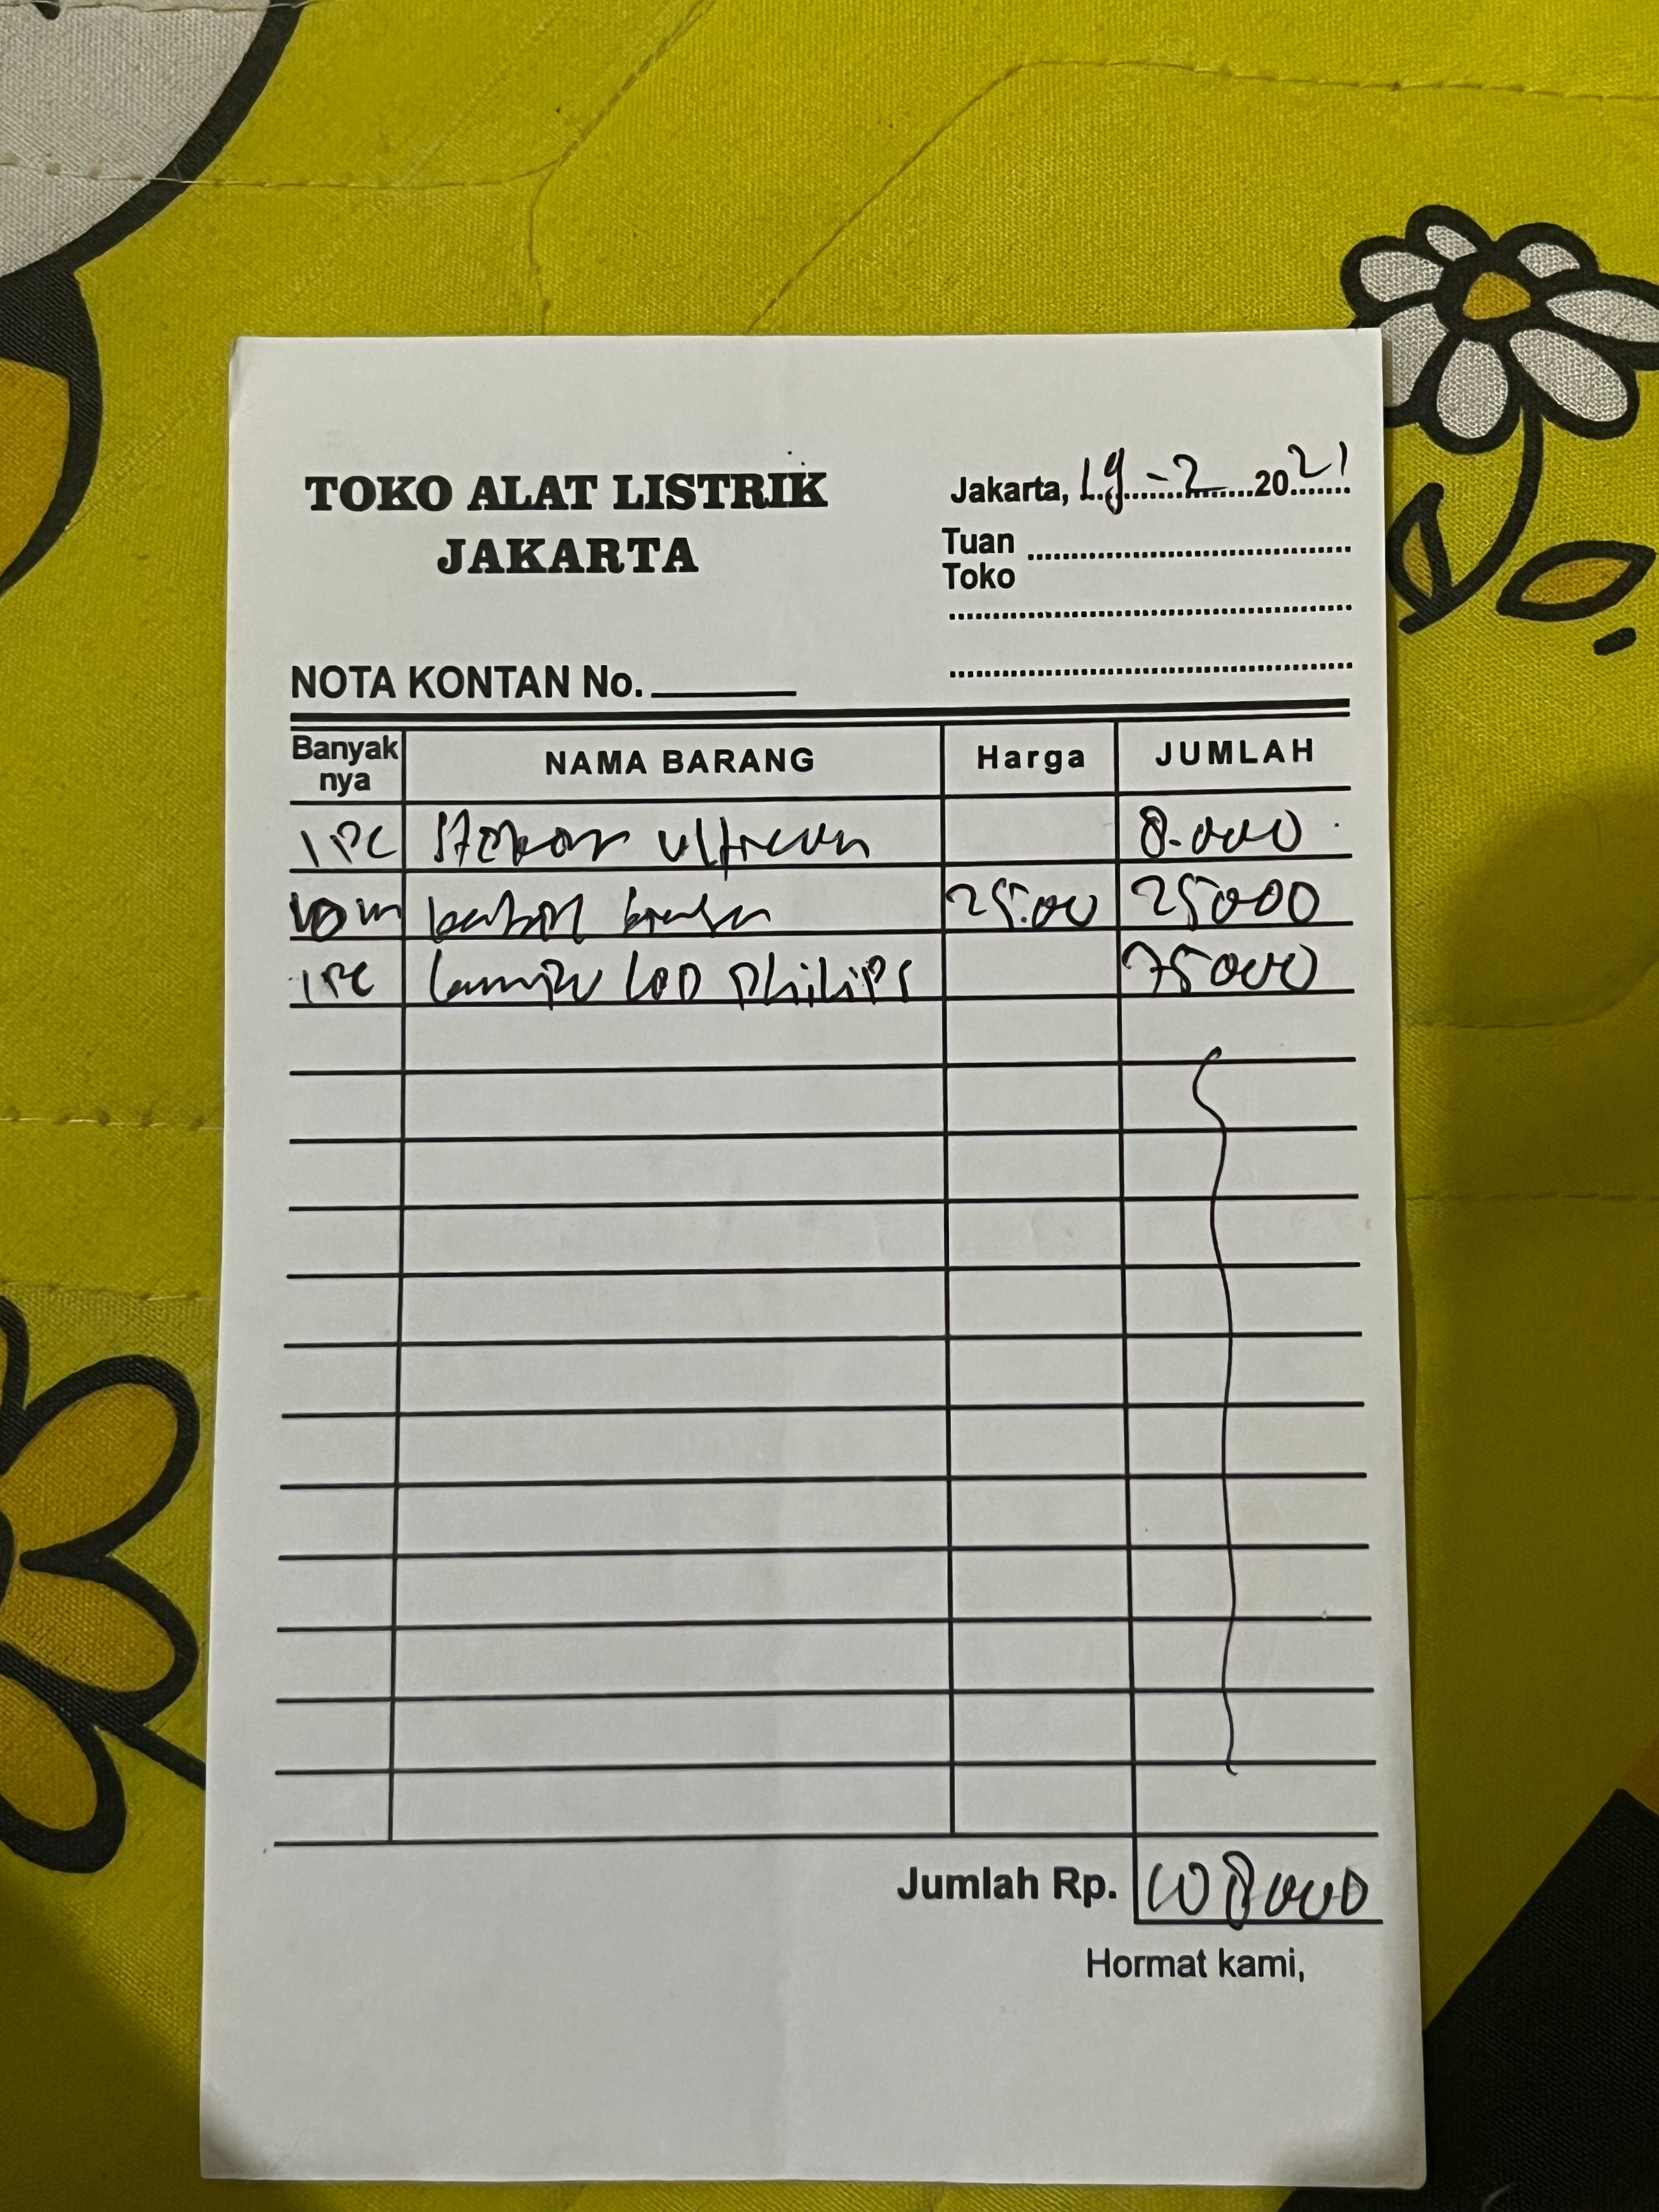 TOKO ALAT LISTRIK
JAKARTA
Jakarta, 19-2 2021
Tuan
Toko
NOTA KONTAN No.
Banyak nya NAMA BARANG Harga JUMLAH
1 PC Steker 8.000
10 m kabel 25.00 25000
1 PC lampu LED Philips 75000
Jumlah Rp. 108000
Hormat kami,